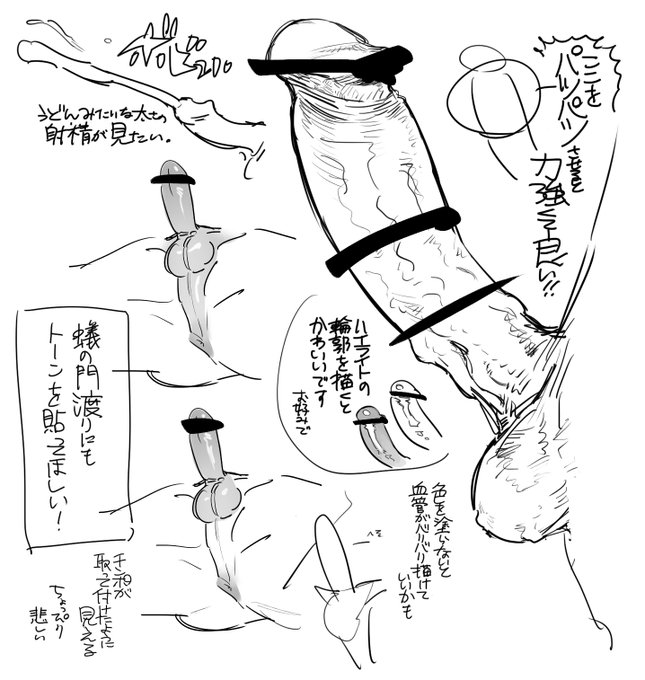 ここを
パッパツ
させると
力強くて良い!!
うどんみたいな太さの
射精が見たい。
ハイライトの
輪郭を描くと
かわいいです
お好みで
蟻の門渡りにも
トーンを貼ってほしい!
色を塗らないと
血管がバリバリ描けて
いいかも
取って付けたように
見える
ちょっぴり
悲しい